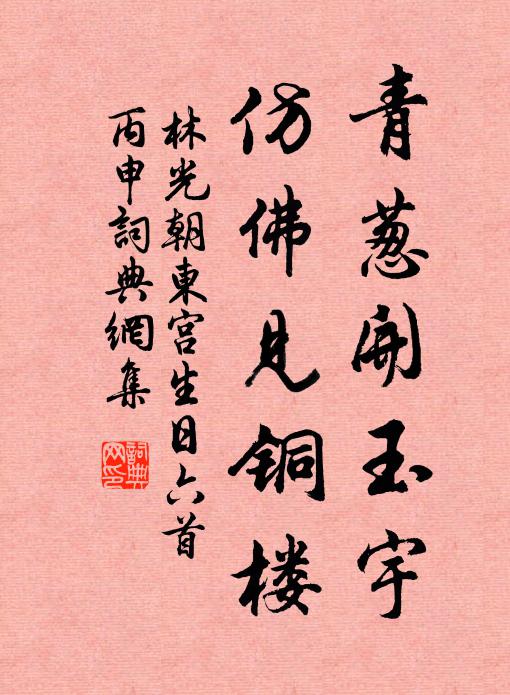 青葱开玉宇
仿佛见铜楼
林光朝東宫生日六首
丙申詞典網集
詞典网印